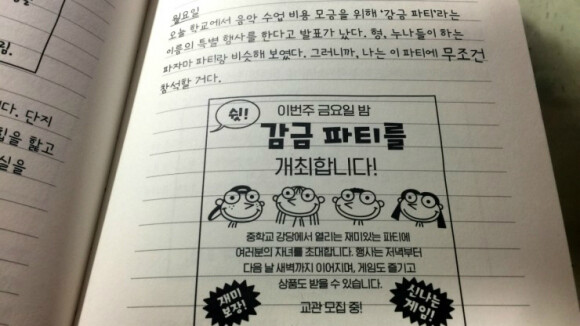 월요일
오늘 학교에서 음악 수업 비용 모금을 위해 '감금 파티'라는
이름의 특별 행사를 한다고 발표가 났다. 형, 누나들이 하는
파자마 파티랑 비슷해 보였다. 그러니까, 나는 이 파티에 무조건
참석할 거다.
쉿!
이번주 금요일 밤
감금 파티를
개최합니다!
중학교 강당에서 열리는 재미있는 파티에
여러분의 자녀를 초대합니다. 행사는 저녁부터
다음 날 새벽까지 이어지며, 게임도 즐기고
상품도 받을 수 있습니다.
재미
보장!
신나는
게임!
교관 모집 중!
림.
다. 단지
립을 핥고
실을